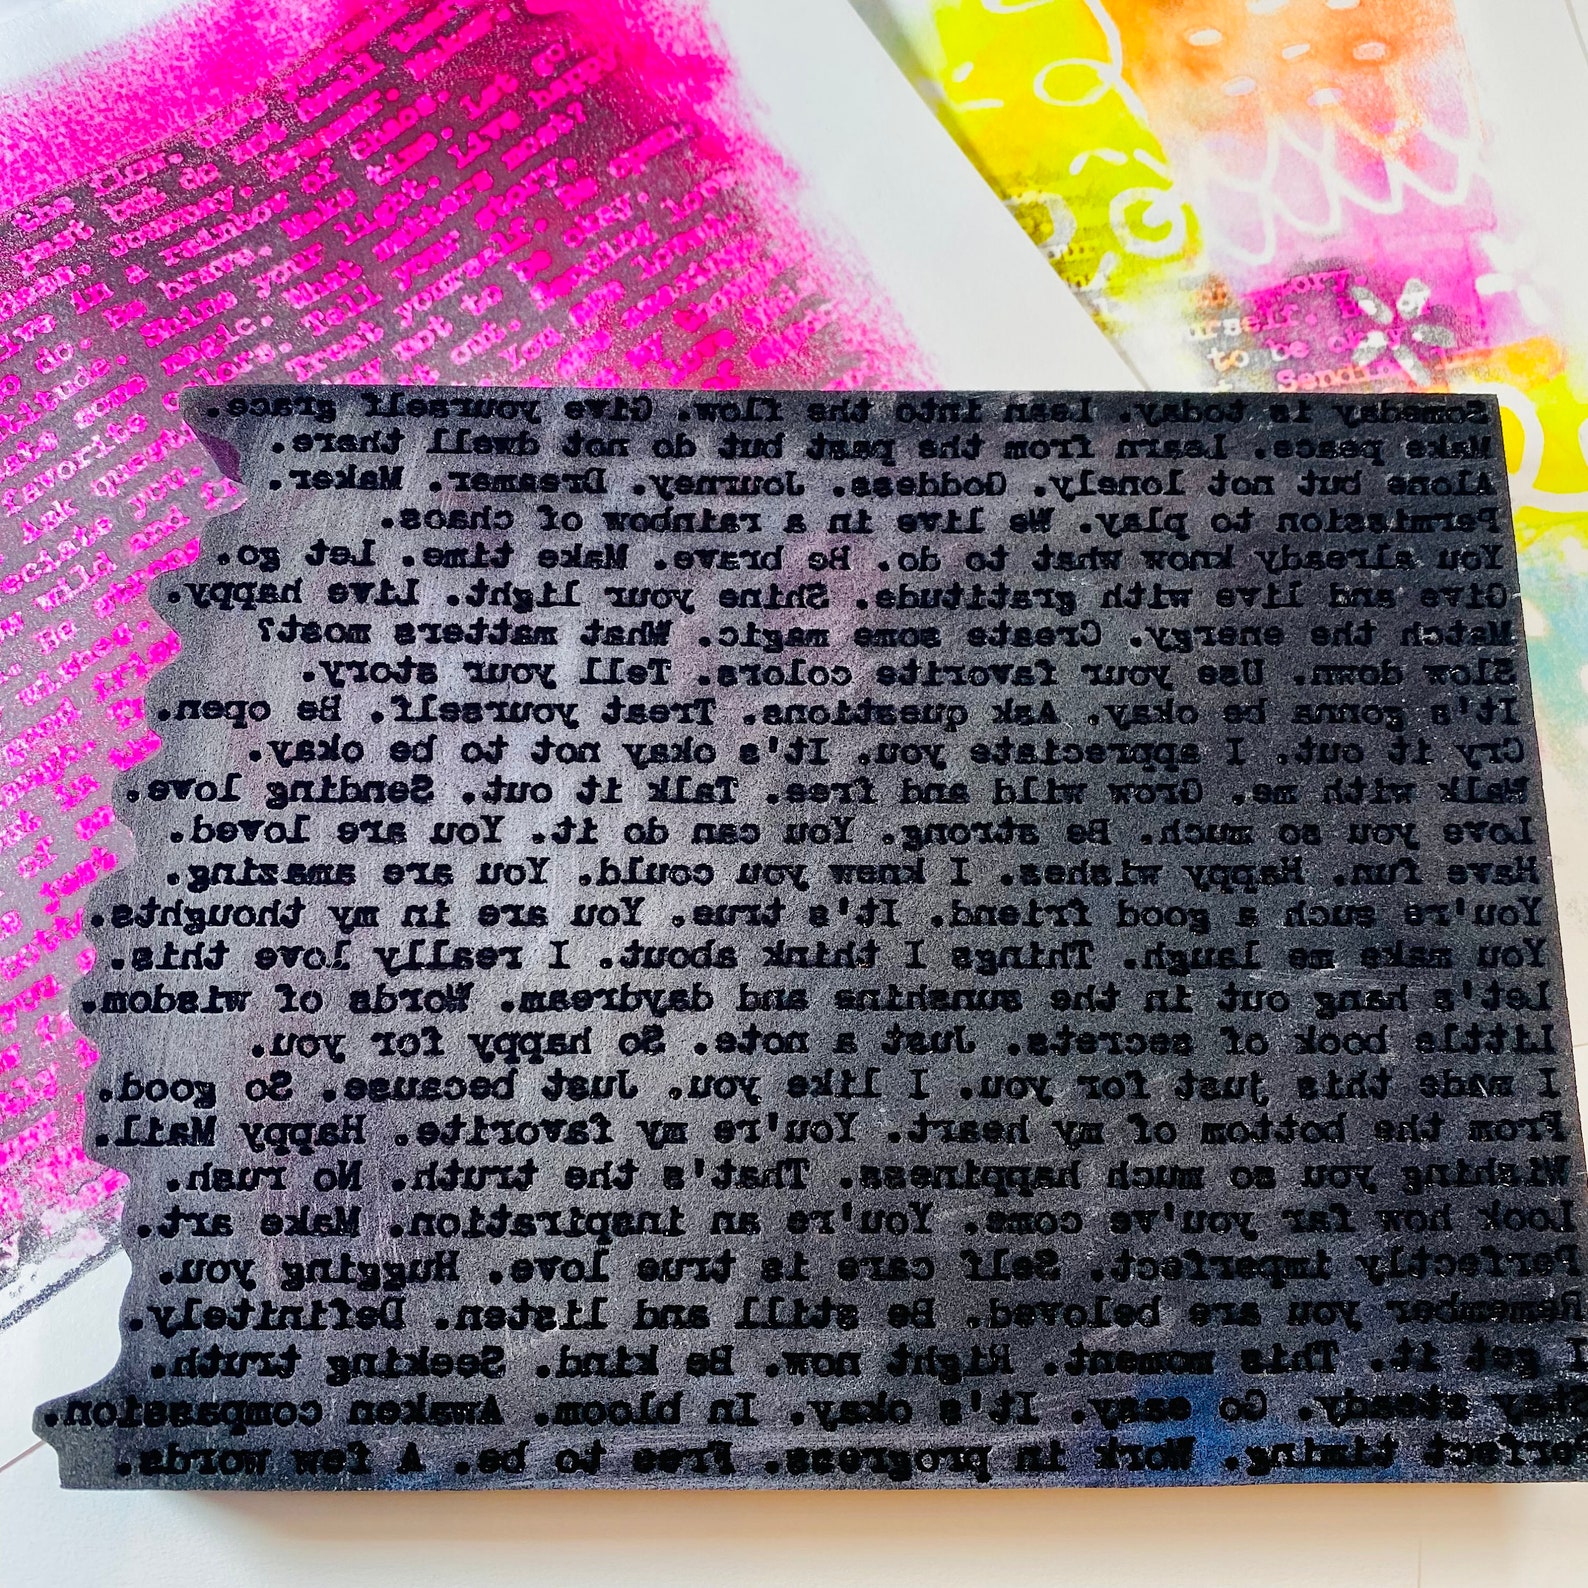 Someday is today. Lean into the flow. Give yourself grace.
Make peace. Learn from the past but do not dwell there.
Alone but not lonely. Goddess. Journey. Dreamer. Maker.
Permission to play. We live in a rainbow of chaos.
You already know what to do. Be brave. Make time. Let go.
Give and live with gratitude. Shine your light. Live happy.
Match the energy. Create some magic. What matters most?
Slow down. Use your favorite colors. Tell your story.
It's gonna be okay. Ask questions. Treat yourself. Be open.
Cry it out. I appreciate you. It's okay not to be okay.
Walk with me. Grow wild and free. Talk it out. Sending love.
Love you so much. Be strong. You can do it. You are loved.
Have fun. Happy wishes. I knew you could. You are amazing.
You're such a good friend. It's true. You are in my thoughts.
You make me laugh. Things I think about. I really love this.
Let's hang out in the sunshine and daydream. Words of wisdom.
Little book of secrets. Just a note. So happy for you.
I made this just for you. I like you. Just because. So good.
From the bottom of my heart. You're my favorite. Happy Mail.
Wishing you so much happiness. That's the truth. No rush.
Look how far you've come. You're an inspiration. Make art.
Perfectly imperfect. Self care is true love. Hugging you.
Remember you are beloved. Be still and listen. Definitely.
I get it. This moment. Right now. Be kind. Seeking truth.
Stay steady. Go easy. It's okay. In bloom. Awaken compassion.
Perfect timing. Work in progress. Free to be. A few words.